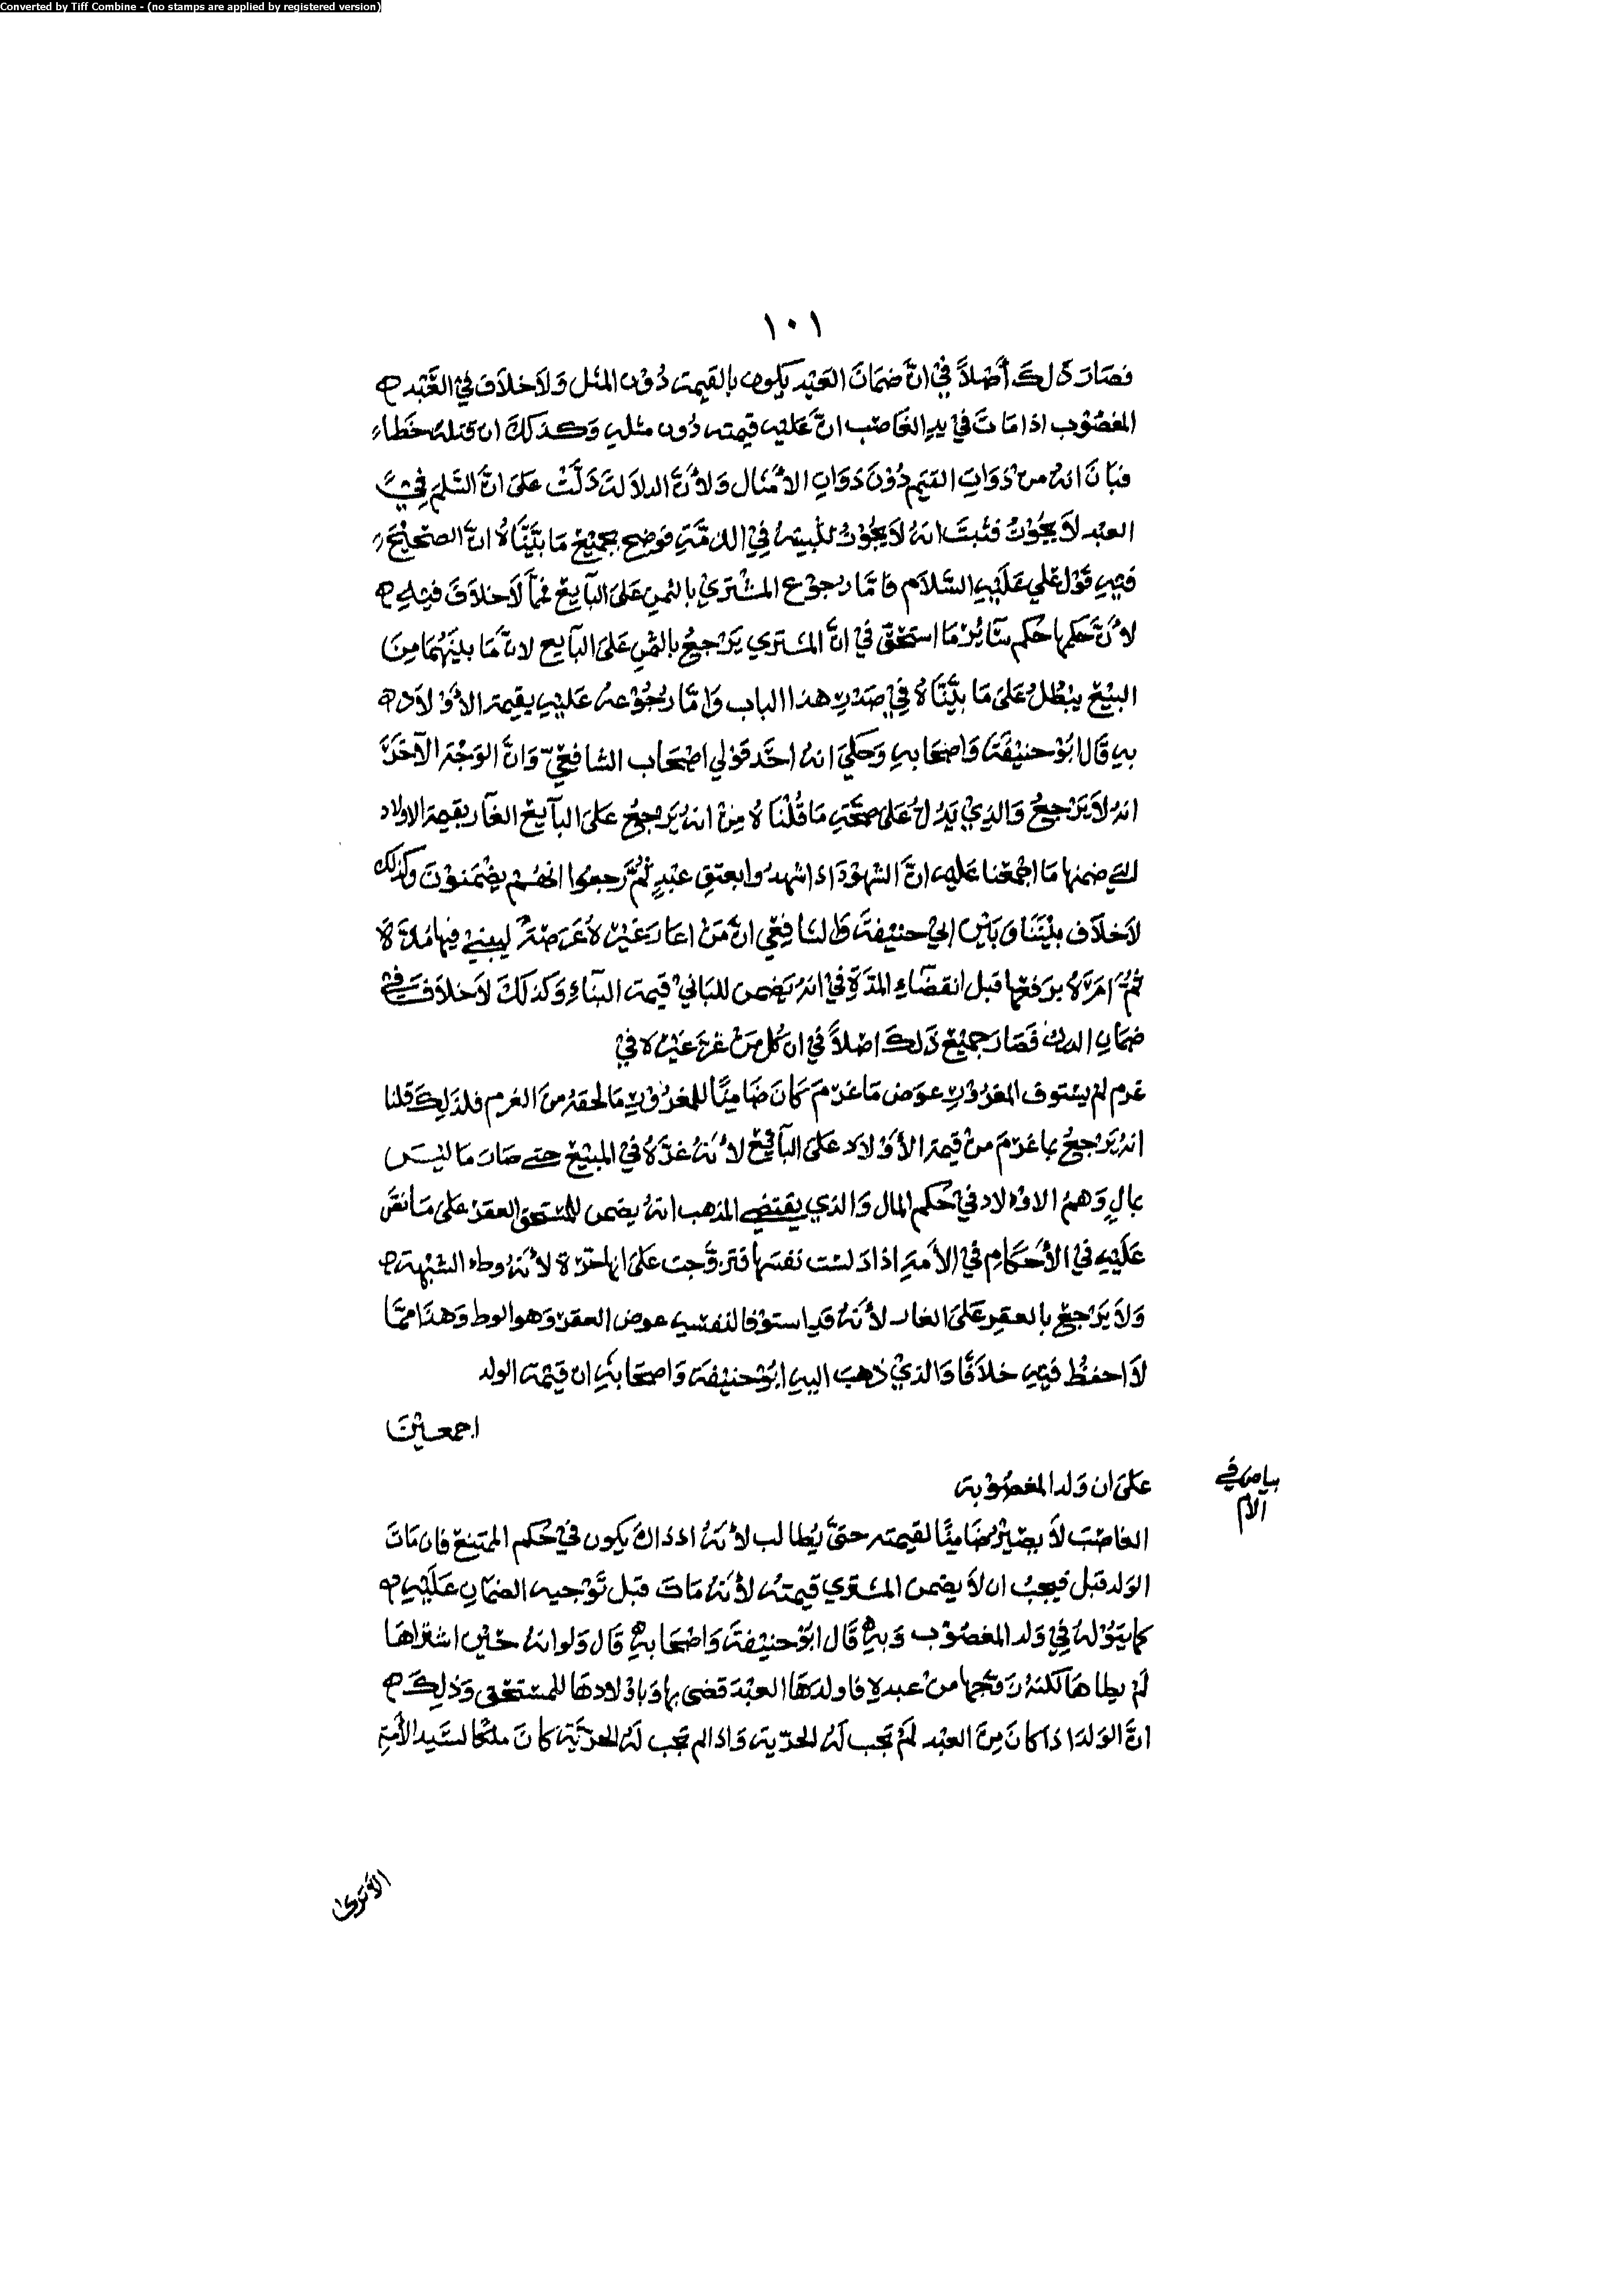 Converted by Tiff Combine - (no stamps are applied by registered version)
١٠١
فصَارَ ذَلكَ أصْلاً في انَّ ضمَانَ العَبْد يكون بالقيمة دُوْن المثل وَلاَ خلاَفَ في العَبْد
المغصُوْب اذا مَاتَ في يدِ الغَاصب انَّ عَليه قيمته دُون مثلهِ وَكذلكَ ان قتلهُ خطاء
فبَانَ انهُ من ذوَاتِ القيَم دُوْنَ ذوَاتِ الأمْثال وَلأنَّ الدلاَلة دَلَّتْ عَلىَ انَّ السَّلمَ في
العبْد لاَ يجُوْزُ فثبتَ انهُ لاَ يجُوْزُ في الذمَّةِ فوَضح بجميْعِ مَا بَيَّنَّاهُ انَّ الصّحيْحَ
فيهِ قَوْل عَلي عَليْهِ السَّلاَم فامَّا رجوْع المشْتريْ بالثمنِ عَلىَ البآيع فمّا لاَ خلاَفَ فيْهِ
لأنَّ حكمها حُكم سآئر مَا استحق في انَّ المشتري يَرْجعُ بالثمنِ عَلىَ البآيع لانَّ مَا بيْنهُمَا مِنَ
البيْع يبْطلُ عَلىَ مَا بيَّنَّاهُ في صَدْرِ هذا الباب وَامَّا رجُوْعهُ عَليهِ بقيمة الأوْلاَد
بهِ قَال ابُوْ حنيْفَةَ وَاصْحَابه وَحكيَ انهُ احَد قوْلي اصْحَاب الشافعيّ وَانَّ الوَجْهَ الآخَرَ
انهُ لاَ يَرْجعُ وَالذيْ يَدُلُّ عَلىَ صحَّةِ مَا قُلْنَاهُ مِنْ انهُ يَرْجعُ عَلىَ البآيع الغآر بقيمة الاولاد
التي ضمنها مَا اجمْعنا عَليْه انَّ الشهوْدَ اذا شهدُوا بعتق عبْدٍ ثمَّ رَجعوا انهُمْ يضْمَنوْنَ وكذلك
لاَ خلاَف بيْنَنَا وَبَيْن ابي حنيْفةَ وَالشافعي انَّ مَنْ اعَارَ غيْرهُ عَرصَةً ليبنيْ فيها مُدَّةً
ثمَّ امَرَهُ برَفعها قبل انقضآءِ المدَّةِ في انهُ يَضْمن للبَانيْ قيمة البنآءِ وَكذلكَ لاَ خلاَفَ في
ضمَانِ الدرك فصَارَ جميْع ذَلكَ اصْلاً في ان كُل مَنْ غَرَّ غَيْرَهُ في
غرم لمْ يستوف المغرُوْر عوَض مَا غرمَ كَانَ ضَامِنًا للمغرُوْرِ مَا لحقهُ منَ الغرم فلذلِكَ قلنا
انهُ يَرْجعُ بما غرمَ منْ قيمة الأوْلاَد عَلىَ البآئع لأنهُ غرَّهُ في المبيْع حتى صَارَ مَا ليْسَ
بمالٍ وَهمُ الاوْلاد في حُكم المال وَالذي يقتضي المذهب انهُ يضمن للمستحق العقر عَلىَ مَا نصَّ
عَليْهِ في الأحْكَامِ في الأمَةِ اذا دَلست نفسَها فتزوَّجت عَلىَ انها حرَّة لأنهُ وطء الشبْهة
وَلاَ يَرْجعُ بالعقرِ عَلىَ الغار لأنهُ قد استوْفا لنفسِه عوض العقر وَهو الوطء وَهذا ممَّا
لاَ احفظُ فيهِ خلاَفًا وَالذيْ ذهبَ اليهِ ابُوْ حنيْفة وَاصحَابهُ ان قيْمة الولد
اجمعيْنَ
عَلىَ ان وَلد المغصُوْبة
بياض في
الأم
الغاصبَ لاَ يصِيْرُ ضَامِنًا لقيمته حتىَّ يُطَالب لأنهُ اذ ذاكَ يكون في حُكم الممتنع فان مَاتَ
الوَلد قبل فيجبُ ان لاَ يضمن المشتري قيمتهُ لأنهُ مَاتَ قبل توْجيه الضمَانِ عَليْهِ
كما يقوْلهُ في وَلد المغصُوْب وَبهِ قَال ابُوْ حنيْفةَ وَاصْحَابهِ قَال وَلو انهُ حيْن اشترَاهَا
لمْ يطَاهَا لكنهُ زَوَّجها منْ عبدهِ فاولدَهَا العبْدَ قضى بها وَباوْلادهَا للمستحق وَذلِكَ
انَّ الوَلد اذا كانَ مِنَ العبْد لمْ تجب لهُ الحرّية وَاذا لم تجب لهُ الحرّيَّة كانَ ملْكًا لسَيِّد الأمَةِ
الأترىَ